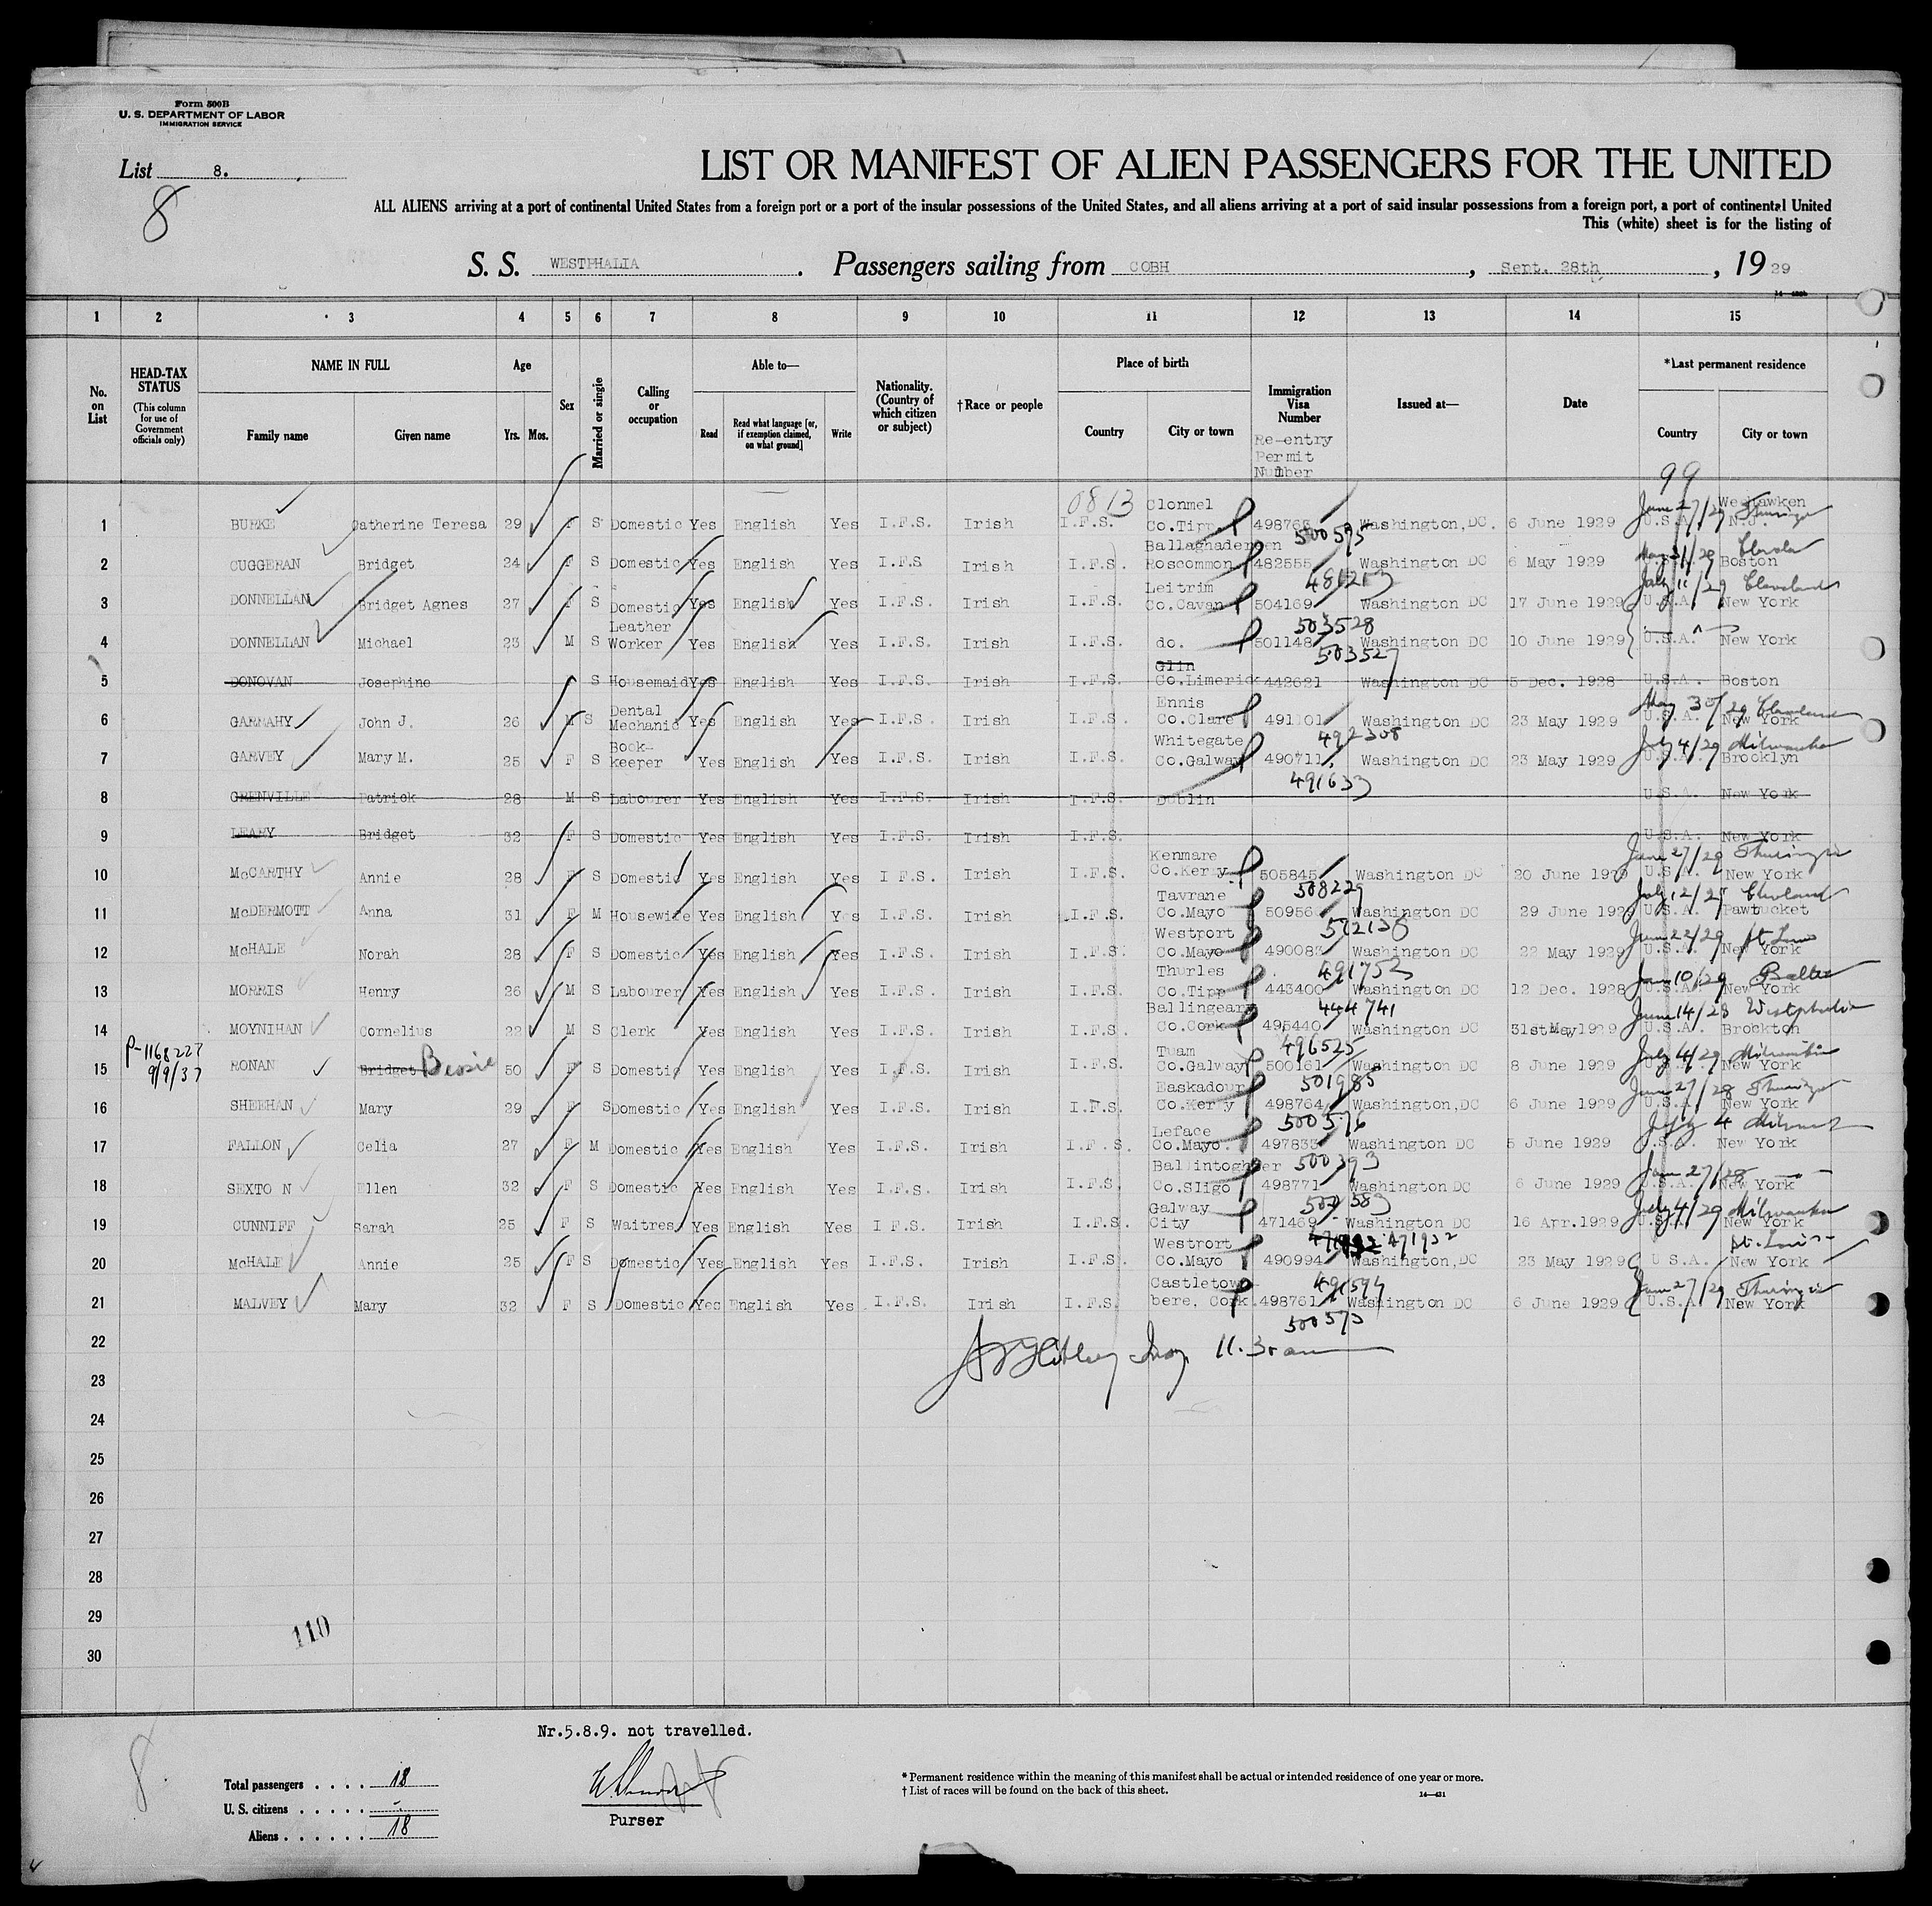 Form 500B
U. S. DEPARTMENT OF LABOR
IMMIGRATION SERVICE
List 8.
8
LIST OR MANIFEST OF ALIEN PASSENGERS FOR THE UNITED
ALL ALIENS arriving at a port of continental United States from a foreign port or a port of the insular possessions of the United States, and all aliens arriving at a port of said insular possessions from a foreign port, a port of continental United
This (white) sheet is for the listing of
S. S. WESTPHALIA . Passengers sailing from COBH , Sept. 28th , 19 29
1 2 3 4 5 6 7 8 9 10 11 12 13 14 15
No. on List
HEAD-TAX STATUS (This column for use of Government officials only)
NAME IN FULL
Family name Given name
Age
Yrs. Mos.
Sex
Married or single
Calling or occupation
Able to—
Read
Read what language [or, if exemption claimed, on what ground]
Write
Nationality. (Country of which citizen or subject)
†Race or people
Place of birth
Country City or town
Immigration Visa Number
Re-entry Permit Number
Issued at—
Date
*Last permanent residence
Country City or town
99
0813
1 BURKE Catherine Teresa 29 F S Domestic Yes English Yes I.F.S. Irish I.F.S. Clonmel Co.Tipp 498763 500575 Washington,DC. 6 June 1929 June 27/29 U.S.A. N.J.
2 CUGGERAN Bridget 24 F S Domestic Yes English Yes I.F.S Irish I.F.S. Ballaghadereen Roscommon 482555 481213 Washington DC 6 May 1929 May 31/29 U.S.A. Boston
3 DONNELLAN Bridget Agnes 27 F S Domestic Yes English Yes I.F.S. Irish I.F.S. Leitrim Co.Cavan 504169 503528 Washington DC 17 June 1929 July 11/29 Cleveland U.S.A. New York
4 DONNELLAN Michael 23 M S Leather Worker Yes English Yes I.F.S. Irish I.F.S. do. 501148 503527 Washington DC 10 June 1929 U.S.A. New York
5 DONOVAN Josephine S Housemaid Yes English Yes I.F.S. Irish I.F.S. Glin Co.Limerick 442621 Washington DC 5 Dec. 1928 U.S.A. Boston
6 GARRAHY John J. 26 M S Dental Mechanic Yes English Yes I.F.S. Irish I.F.S. Ennis Co.Clare 491101 492308 Washington DC 23 May 1929 May 30/29 Cleveland U.S.A. New York
7 GARVEY Mary M. 25 F S Book-keeper Yes English Yes I.F.S. Irish I.F.S. Whitegate Co.Galway 490711 491633 Washington DC 23 May 1929 July 4/29 Milwaukee U.S.A. Brooklyn
8 GRENVILLE Patrick 28 M S Labourer Yes English Yes I.F.S. Irish I.F.S. Dublin U.S.A. New York
9 LEARY Bridget 32 F S Domestic Yes English Yes I.F.S. Irish I.F.S. U.S.A. New York
10 McCARTHY Annie 28 F S Domestic Yes English Yes I F.S. Irish I.F.S. Kenmare Co.Kerry 505845 508229 Washington DC 20 June 1929 June 27/29 Thuringia U.S.A. New York
11 McDERMOTT Anna 31 F M Housewife Yes English Yes I.F.S. Irish I.F.S. Tavrane Co.Mayo 50956 512136 Washington DC 29 June 1929 July 12/29 Cleveland U.S.A. Pawtucket
12 McHALE Norah 28 F S Domestic Yes English Yes I.F.S. Irish I.F.S. Westport Co.Mayo 490083 491753 Washington DC 22 May 1929 June 22/29 St Louis U.S.A. New York
13 MORRIS Henry 26 M S Labourer Yes English Yes I.F.S. Irish I.F.S. Thurles Co.Tipp 443400 444741 Washington DC 12 Dec. 1928 Jan 10/29 U.S.A. New York
14 MOYNIHAN Cornelius 22 M S Clerk Yes English Yes I.F.S. Irish I.F.S. Ballingeary Co.Cork 495440 496525 Washington DC 31st May 1929 June 14/28 Westphalia U.S.A. Brockton
P-1168227
9/9/37
15 RONAN Bridget Bessie 50 F S Domestic Yes English Yes I.F.S. Irish I.F.S. Tuam Co.Galway 500161 501985 Washington DC 8 June 1929 July 4/29 Milwaukee U.S.A. New York
16 SHEEHAN Mary 29 F S Domestic Yes English Yes I.F.S. Irish I.F.S. Baskadour Co.Kerry 498764 500576 Washington,DC 6 June 1929 June 27/28 U.S.A. New York
17 FALLON Celia 27 F M Domestic Yes English Yes I.F.S. Irish I.F.S. Leface Co.Mayo. 497833 500393 Washington DC 5 June 1929 July 4 U.S.A. New York
18 SEXTON Ellen 32 F S Domestic Yes English Yes I.F.S. Irish I.F.S. Ballintogher Co.Sligo 498771 500583 Washington DC 6 June 1929 June 27/28 U.S.A. New York
19 CUNNIFF Sarah 25 F S Waitress Yes English Yes I F.S. Irish I.F.S. Galway City 471469 471932 Washington DC 16 Apr.1929 July 4/29 Milwaukee U.S.A. New York
20 McHALE Annie 25 F S Domestic Yes English Yes I.F.S. Irish I.F.S. Westport Co.Mayo 490994 491594 Washington,DC 23 May 1929 St. Louis U S.A. New York
21 MALVEY Mary 32 F S Domestic Yes English Yes I.F.S. Irish I.F.S. Castletown bere, Cork 498761 500573 Washington DC 6 June 1929 June 27/29 Thuringia U.S.A. New York
22 11.30 am
23
24
25
26
27
28
29
30
110
Nr.5.8.9. not travelled.
8
Total passengers . . . . 18
U. S. citizens . . . . . -
Aliens . . . . . . 18
Purser
* Permanent residence within the meaning of this manifest shall be actual or intended residence of one year or more.
† List of races will be found on the back of this sheet.